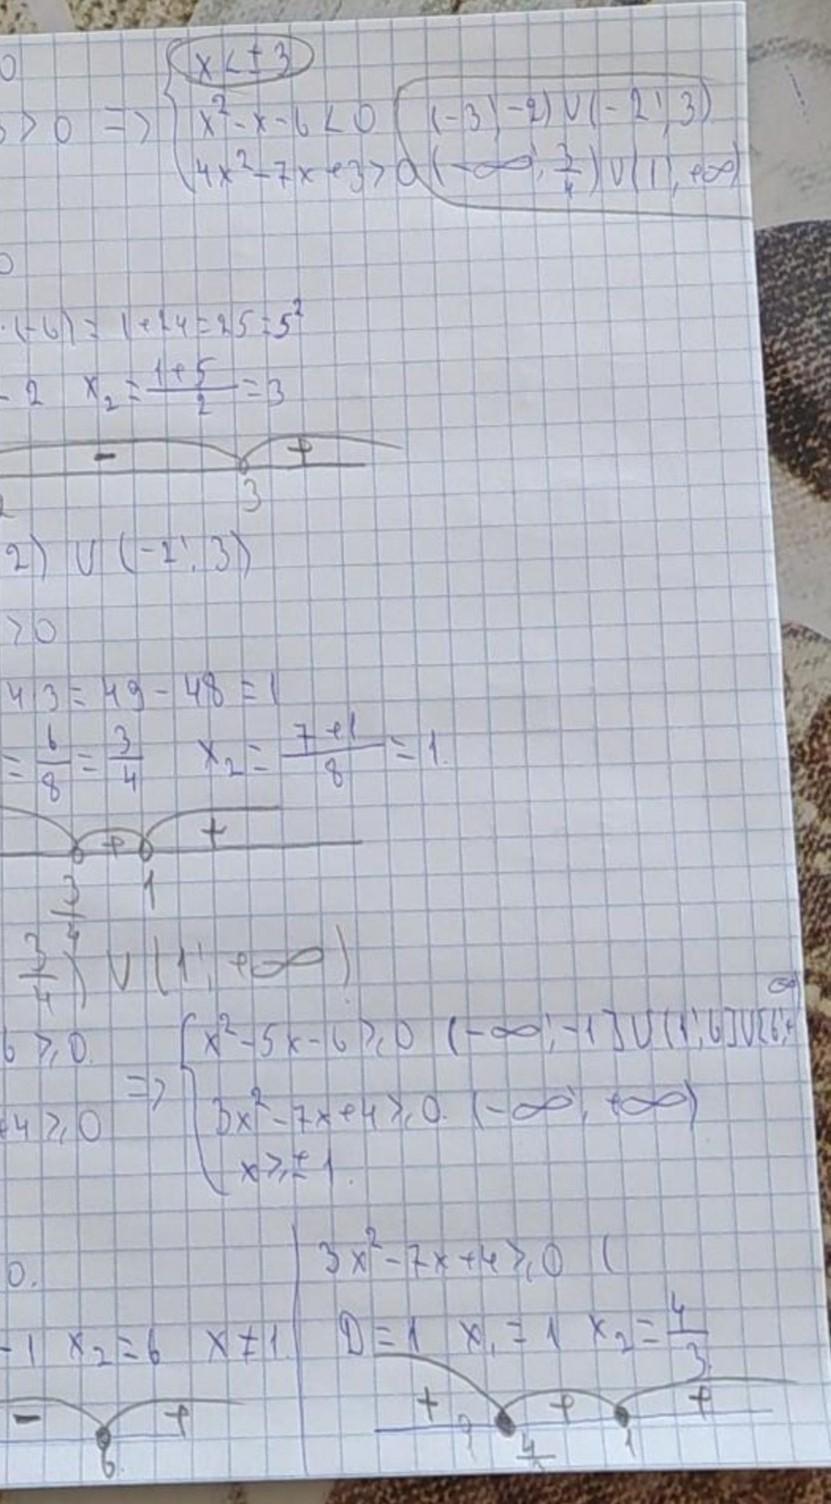 0
x < ± 3
> 0 => x² - x - 6 < 0 (-3; -2) ∪ (-2; 3)
4x² - 7x + 3 > 0 (-∞; 3/4) ∪ (1; +∞)
0
· (-6) = 1 + 24 = 25 = 5²
- 2 x₂ = (1+5)/2 = 3
- +
3
2) ∪ (-2; 3)
> 0
4·3 = 49 - 48 = 1
= 6/8 = 3/4 x₂ = (7+1)/8 = 1.
+ +
3/4 1
3/4) ∪ (1; +∞)
6 ≥ 0. x² - 5x - 6 ≥ 0 (-∞; -1] ∪ (1; 6] ∪ [6; +∞
=>
+4 ≥ 0 3x² - 7x + 4 ≥ 0. (-∞; +∞)
x ≥ ± 1.
0. 3x² - 7x + 4 ≥ 0 (
-1 x₂ = 6 x ≠ 1 D = 1 x₁ = 1 x₂ = 4/3
- + + + +
6. 1